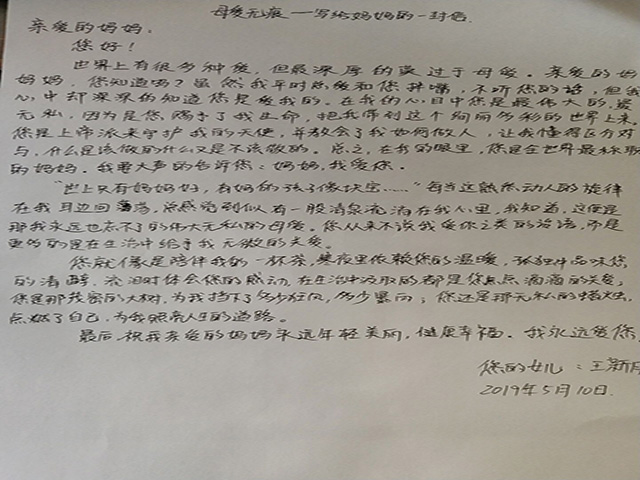 母爱无痕——写给妈妈的一封信.
亲爱的妈妈：
您好！
世界上有很多种爱，但最深厚的莫过于母爱。亲爱的妈
妈，您知道吗？虽然我平时总爱和您拌嘴，不听您的话，但我
心中却深深的知道您是爱我的。在我的心目中您是最伟大的，爱
无私，因为是您赐予了我生命，把我带到这个绚丽多彩的世界上来。
您是上帝派来守护我的天使，并教会了我如何做人，让我懂得区分对
与，什么是该做的什么又是不该做的。总之，在我的眼里，您是全世界最称职
的妈妈。我要大声的告诉您：妈妈，我爱您。
“世上只有妈妈好，有妈的孩子像块宝……”每当这熟悉动人的旋律
在我耳边回荡，总感觉到似有一股清泉流淌在我心里，我知道，这便是
那我永远也忘不了的伟大无私的母爱。您从来不说我爱你之类的话语，而是
更多的是在生活中给予我无微的关爱。
您就像是陪伴我的一杯茶，寒夜里依赖您的温暖，孤独中品味您
的清醇，流泪时体会您的感动，在生活中汲取的都是您点点滴滴的关爱，
您是那茂密的大树，为我挡下多少狂风，多少暴雨；您还是那无私的蜡烛，
点燃了自己，为我照亮人生的道路。
最后，祝我亲爱的妈妈永远年轻美丽，健康幸福。我永远爱您
您的女儿：王新月
2019年5月10日.